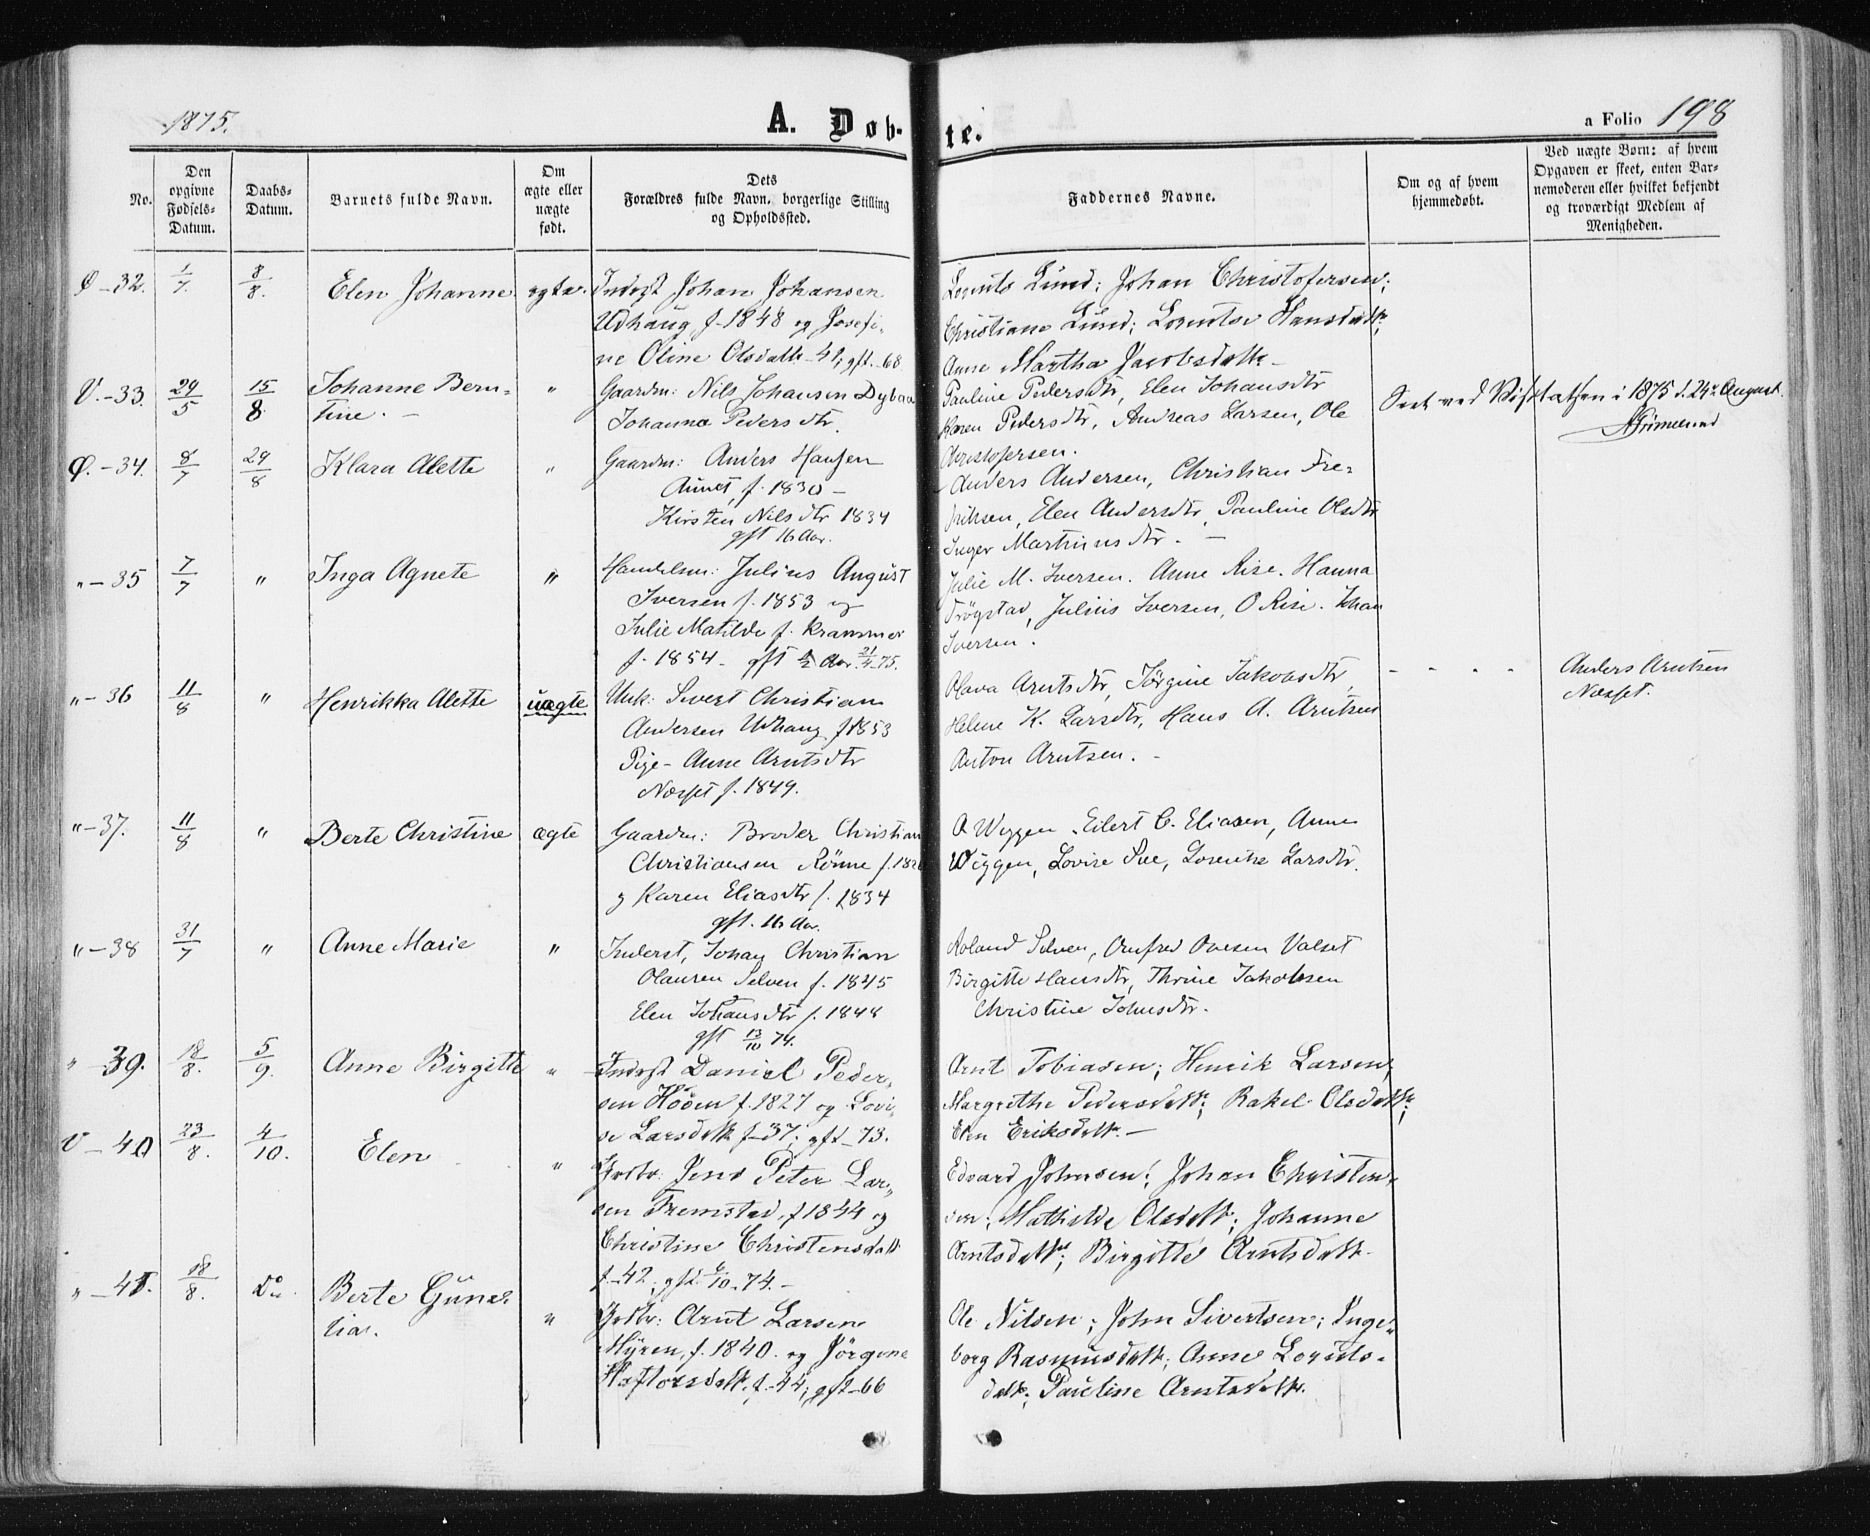 1875.
A. Døb-
te.
a Folio 198
No.
Den
opgivne
Fødsels-
Datum.
Daabs-
Datum.
Barnets fulde Navn.
Om
ægte eller
uægte
født.
Dets
Forældres fulde Navn, borgerlige Stilling
og Opholdssted.
Faddernes Navne.
Om og af hvem
hjemmedøbt.
Ved uægte Børn: af hvem
Opgaven er skeet, enten Bar-
nemoderen eller hvilket bekjendt
og troværdigt Medlem af
Menigheden.
Ø - 32. 1/7. 8/8. Elen Johanne ægte.
Inderst Johan Johansen
Udhaug f. 1848 og Josefi-
ne Oline Olsdatt. 41; gft. 68
Lorents Lund; Johan Christofersen;
Christiane Lund; Hansdatt;
Anne Martha Jacobsdatt.
V. - 33. 29/5 15/8 Johanne Bern-
tine. - "
Gaardm: Nils Johansen Dybaa
Johanna Pedersdtr.
Pauline Pedersdtr, Elen Johansdtr
Karen Pedersdtr, Andreas Larsen, Ole
Christofersen.
Seet ved Visitatsen i 1875 d. 24de August.
Ø. - 34. 8/7 29/8 Klara Alette "
Gaardm: Anders Hansen
Aunet, f. 1830 -
Kirsten Nilsdtr 1834
gft 16 Aar.
Anders Andersen, Christian Fre-
driksen, Elen Andersdtr, Pauline Olsdtr
Inger Martinusdtr. -
" - 35 7/7 " Inga Agnete "
Handelsm: Julius August
Iversen f. 1853 og
Julie Matilde f. Krammer
f. 1854 - gft 1/2 Aar. 21/4 75.
Julie M. Iversen. Anne Rise. Hanna
Trøgstad, Julius Iversen, O Rise. Johan
Iversen.
" - 36 11/8 " Henrikka Alette uægte
Unk: Sivert Christian
Andersen Udhaug f 1853
Pige - Anne Arntsdtr
Næsset f. 1849.
Olava Arntsdtr, Jørgine Jakobsdtr,
Helene K. Larsdtr, Hans A. Arntsen
Anton Arntsen. -
- - - -
Anders Arntsen
Næsset.
" - 37. 11/8 " Berte Christine ægte
Gaardm: Broder Christian
Christiansen Rönne f. 18
og Karen Eliasdtr f. 1834
gft. 16 Aar.
O Wiggen, Eilert C. Eliasen, Anne
Wiggen, Lovise Larsdtr.
" - 38 31/7 " Anne Marie "
Inderst, Johan Christian
Olausen Selven f. 1845
Elen Johansdtr f. 1848
gft 13/10 74.
Roland Selven, Arnfred Ovesen Valset
Birgitte Hansdtr, Thrine Jakobsen
Christine Johnsdtr.
" 39. 18/8. 5/9. Anne Birgitte "
Inderst Daniel Peder-
sen Hööen f. 1827 og Lovi-
se Larsdatt f. 37; gft. 73.
Arnt Tobiasen; Henrik Larsen;
Margrethe Pedersdatt; Rakel Olsdatt;
Elen Eriksdatt. -
V - 40 23/8. 4/10. Elen "
Jens Peter Lar-
sen Fremstad, f 1844 og
Christine Christensdatt
f. 42; gft. 6/10 - 74. -
Edvard Johnsen; Johan Christen-
sen; Mathilde Olsdatt; Johanne
Arntsdatt; Birgitte Arntsdatt.
" - 41. 18/8. Do. Berte Gune-
lia. "
Arnt Larsen
Myren, f. 1840. og Jörgine
Haftorsdatt. f. 44; gft. 66
Ole Nilsen; John Sivertsen; Inge-
borg Rasmusdatt; Anne Lorents-
datt; Pauline Arntsdatt.